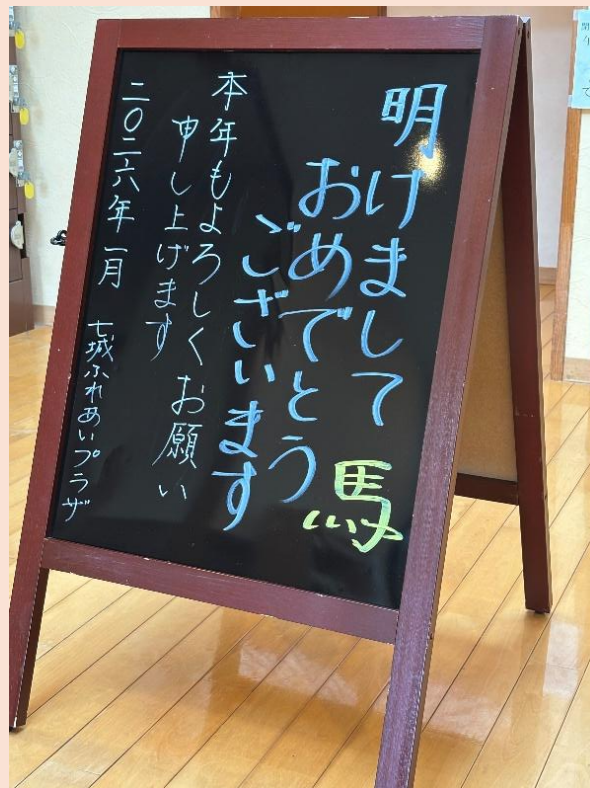 明けまして
おめでとう
ございます
馬
本年もよろしくお願い
申し上げます
二〇二六年一月
七城ふれあいプラザ